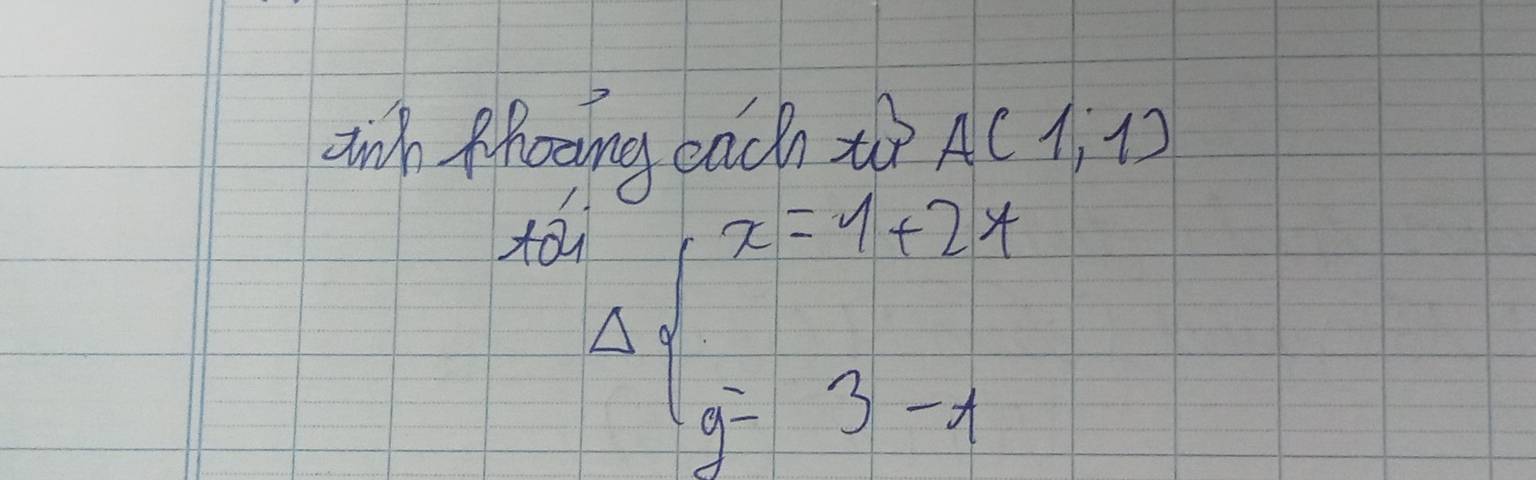 tính khoảng cách từ A(1;1)
tới
x = 1 + 2t
Δ {
y = 3 - t